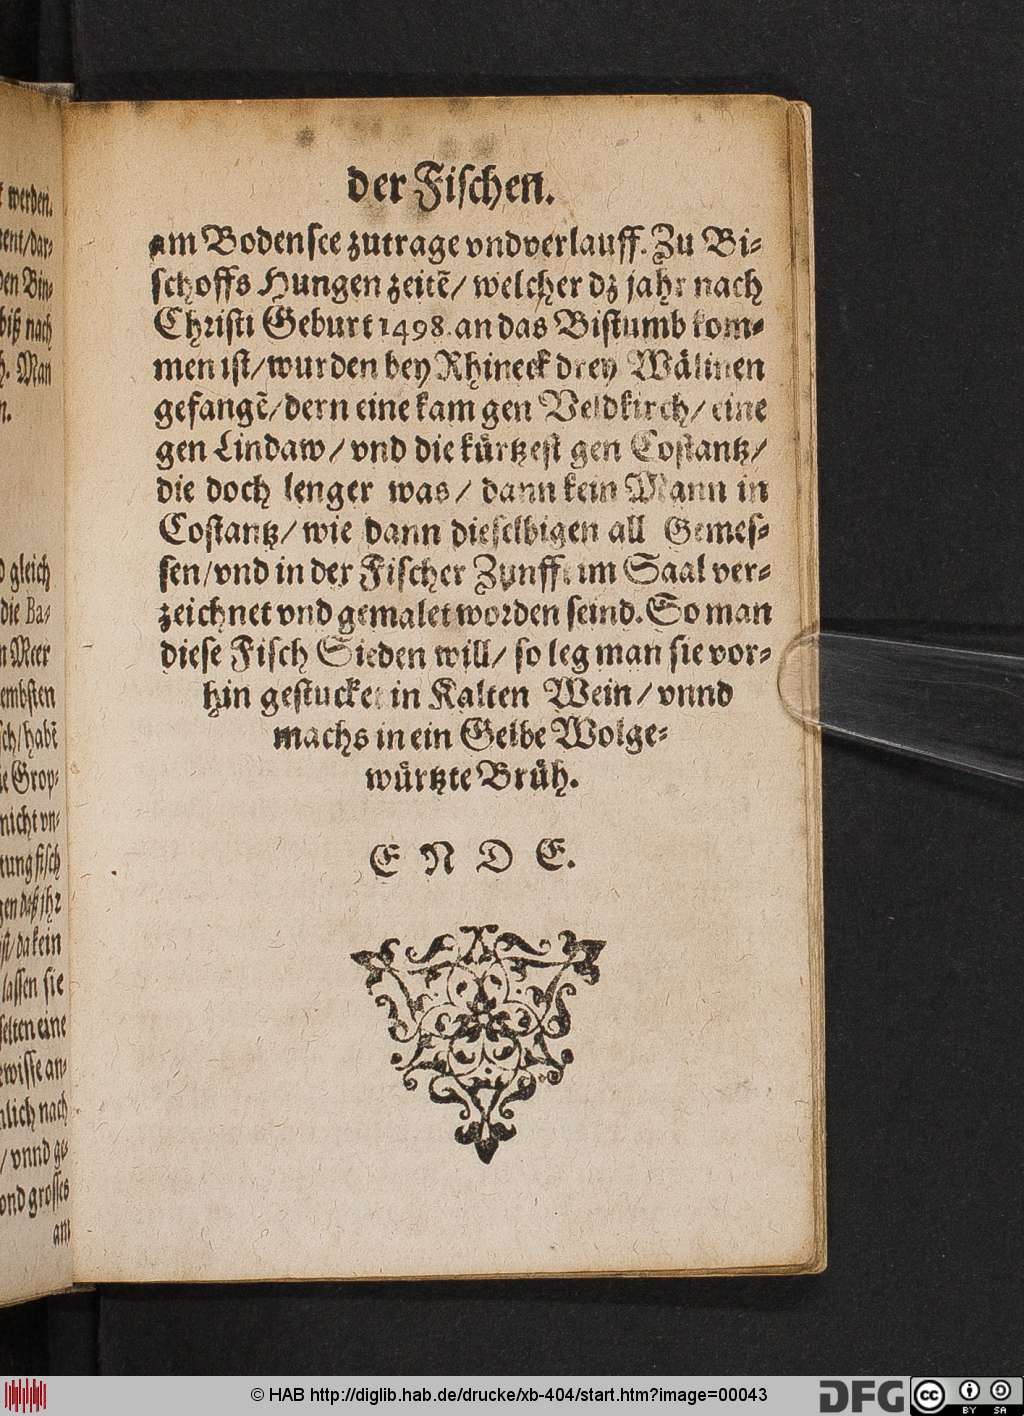 t werden.
ent/dar-
den Bin-
biß nach
h. Man
n.
d gleich
die Ba-
n Meer
embsten
sch/habē
ie Grop-
nicht vn-
tung fisch
gen daß jhr
ist/da kein
lassen sie
selten eine
ewisse an-
nlich nach
/ vnnd ge-
vnd grosses
am
der Fischen.
am Bodensee zutrage vnd verlauff. Zu Bi-
schoffs Hungen zeitē/ welcher dz jahr nach
Christi Geburt 1498. an das Bistumb kom-
men ist/ wurden bey Rhineck drey Wälinen
gefangē/ dern eine kam gen Veldkirch/ eine
gen Lindaw/ vnd die kürtzest gen Costantz/
die doch lenger was/ dann kein Mann in
Costantz/ wie dann dieselbigen all Gemes-
sen/ vnd in der Fischer Zunfft im Saal ver-
zeichnet vnd gemalet worden seind. So man
diese Fisch Sieden will/ so leg man sie vor-
hin gestucket in Kalten Wein/ vnnd
machs in ein Gelbe Wolge-
würtzte Brüh.
E N D E.
© HAB http://diglib.hab.de/drucke/xb-404/start.htm?image=00043
DFG
cc BY SA